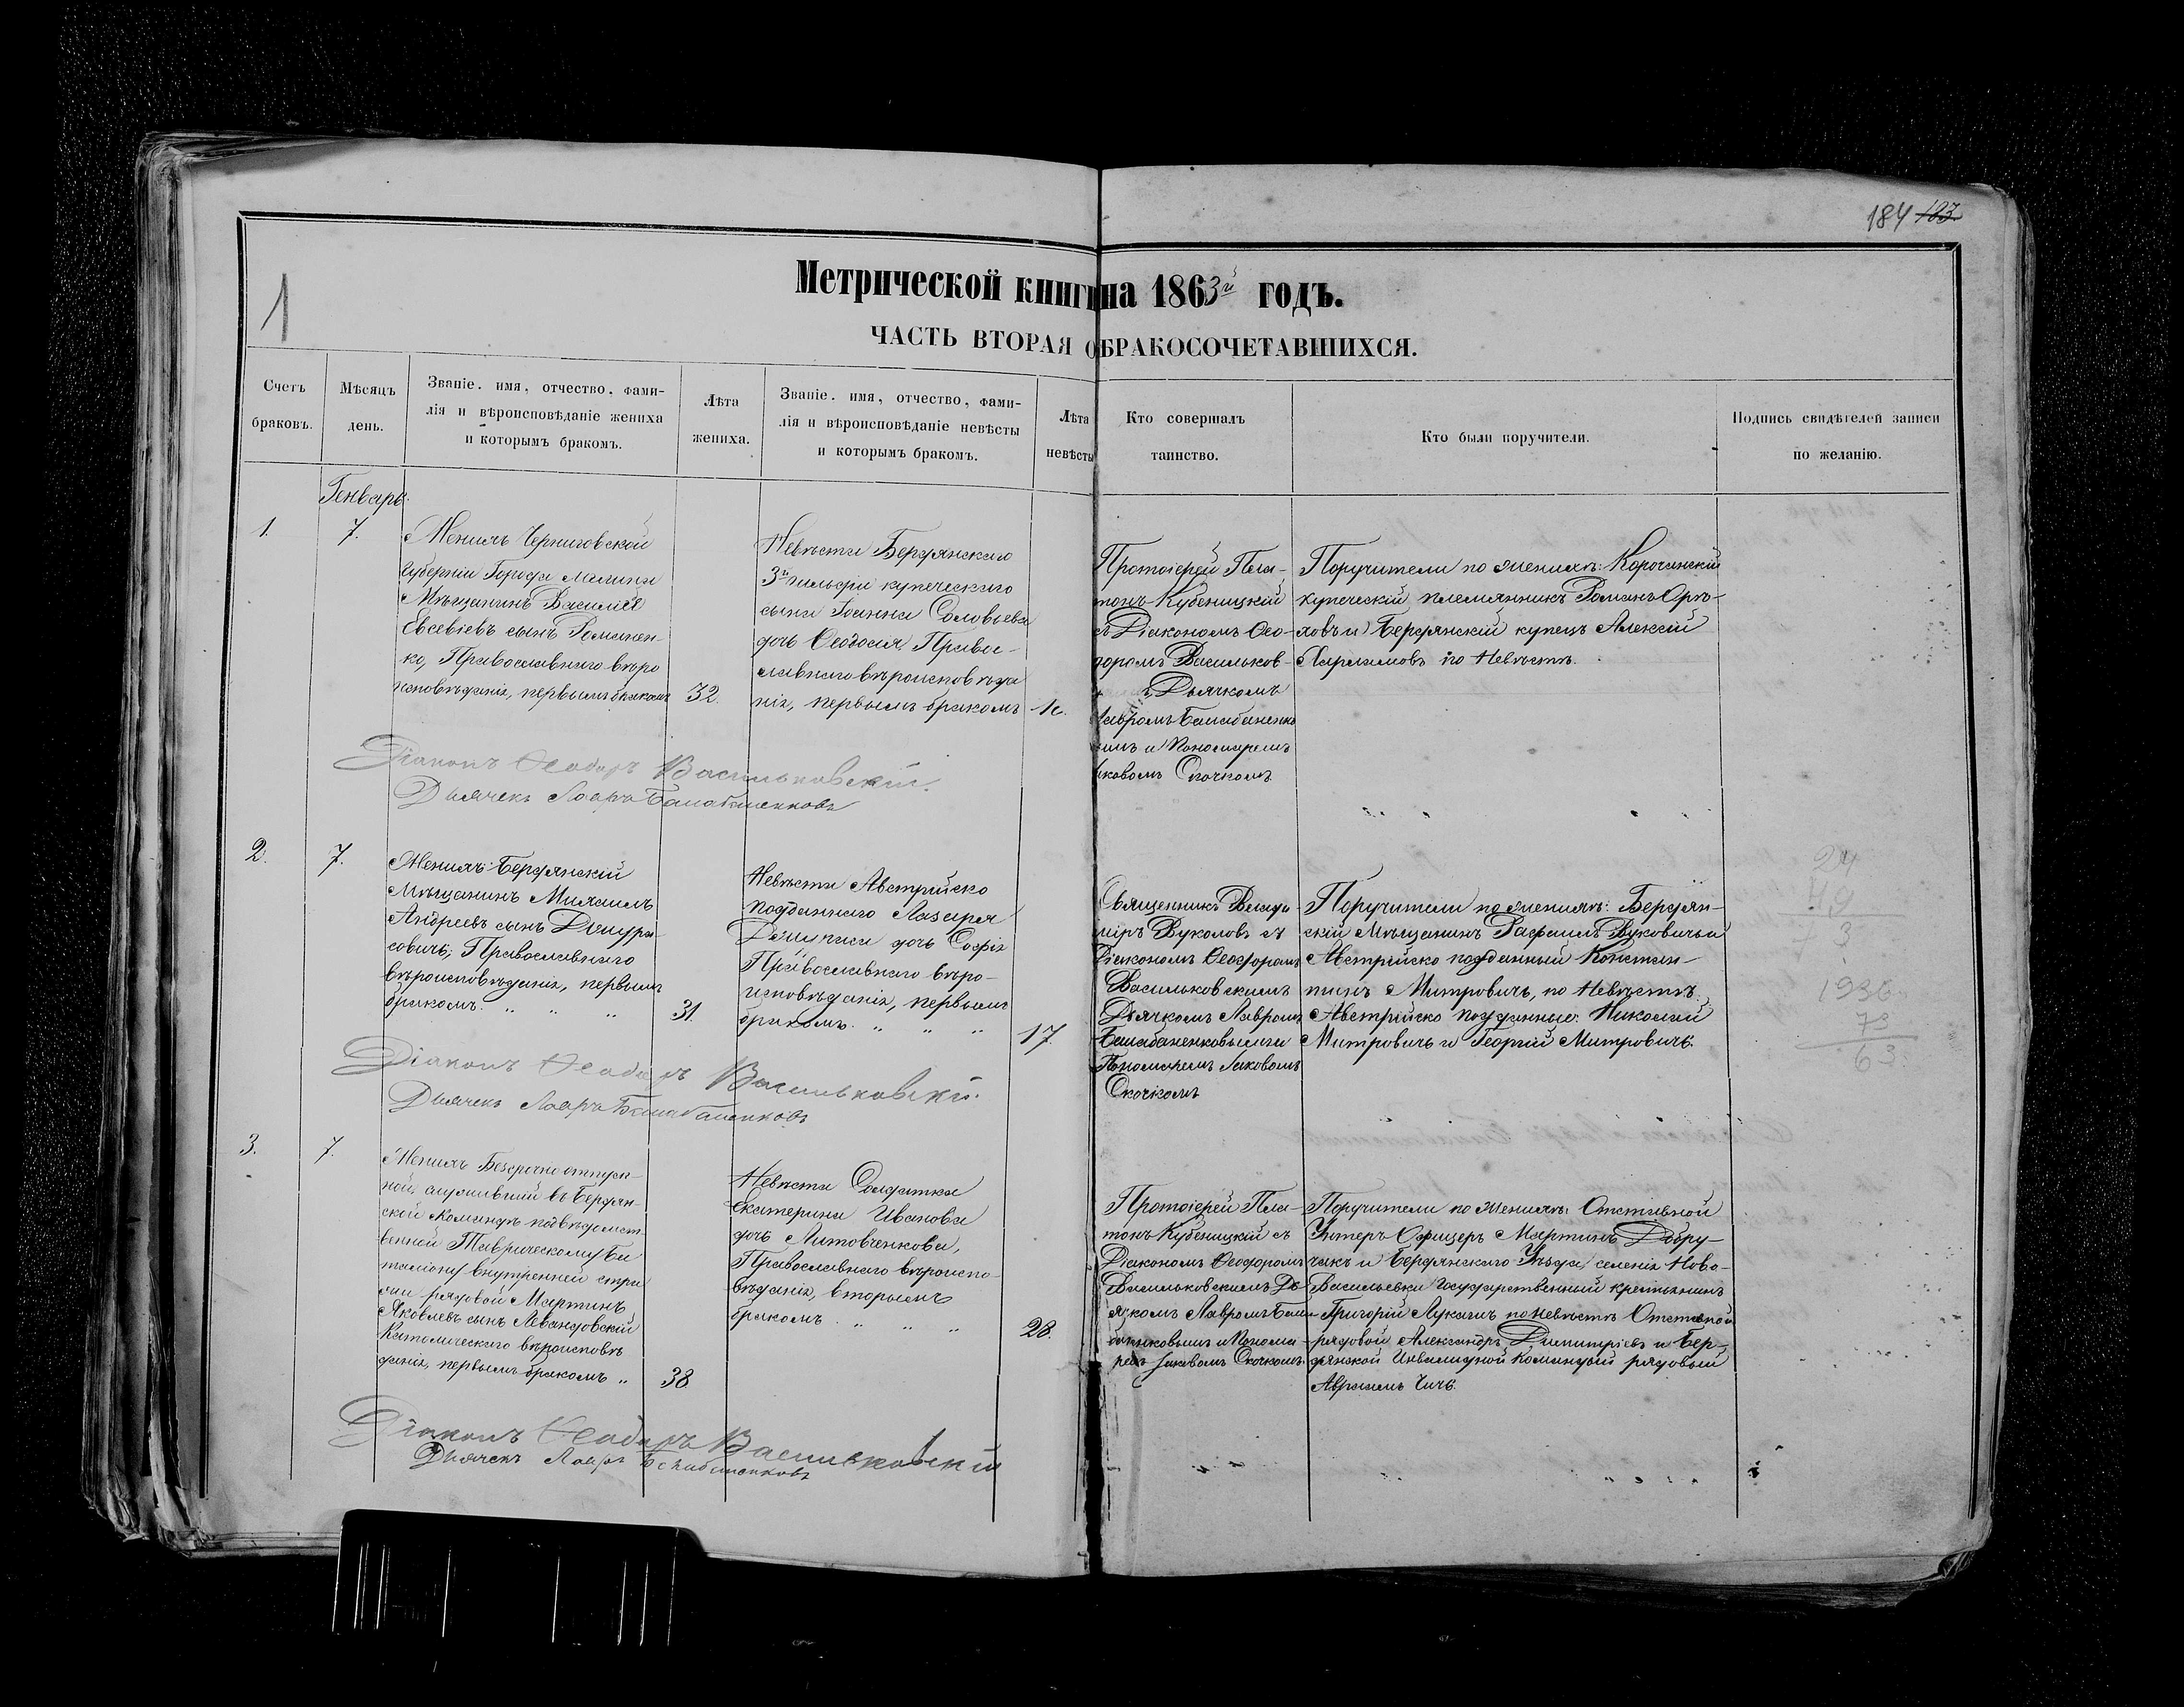 184 183
1
Метрической книги на 1863й годъ.
ЧАСТЬ ВТОРАЯ О БРАКОСОЧЕТАВШИХСЯ.
Счетъ браковъ.
Мѣсяцъ день.
Званіе, имя, отчество, фами-
лія и вѣроисповѣданіе жениха
и которымъ бракомъ.
Лѣта жениха.
Званіе, имя, отчество, фами-
лія и вѣроисповѣданіе невѣсты
и которымъ бракомъ.
Лѣта невѣсты
Кто совершалъ
таинство.
Кто были поручители.
Подпись свидѣтелей записи
по желанію.
Генварь.
1.
7.
Женихъ Черниговской
Губерніи Города
Мѣщанинъ Василій
Евсевіевъ сынъ Романен-
ко, Православнаго вѣро
исповѣданія, первымъ бракомъ
32.
Невѣста Бердянскаго
3й гильдіи купеческаго
сына Іоанна Соловьева
дочь Ѳеодосія, Право-
славнаго вѣроисповѣда
нія, первымъ бракомъ
Протоіерей Пла-
тонъ Кубеницкій
съ Діакономъ Ѳео-
доромъ Васильков-
Дьячкомъ
Лавромъ Балабаненко
вымъ и Пономаремъ
Іаковомъ Скочкомъ
Поручители по женихѣ: Корочанскій
купеческій племянникъ Романъ Орѣ-
ховъ и Бердянскій купецъ Алексѣй
по Невѣстѣ.
Діаконъ Ѳеодоръ Васильковскій.
Дьячекъ Лавръ Балабаненковъ
2.
7.
Женихъ: Бердянскій
Мѣщанинъ Михаилъ
Андреевъ сынъ
совичъ; Православнаго
вѣроисповѣданія, первымъ
бракомъ. „ „ „
31.
Невѣста Австрійско
подданнаго Лазаря
дочь Софія
Православнаго вѣро-
исповѣданія, первымъ
бракомъ. „ „ „
17.
Священникъ Влади-
міръ Вуколовъ съ
Діакономъ Ѳеодоромъ
Васильковскимъ
Дьячкомъ Лавромъ
Балабаненковымъ и
Пономаремъ Іаковомъ
Скочкомъ
Поручители по женихѣ: Бердян-
скій Мѣщанинъ Рафаилъ Вуковичъ и
Австрійско подданный Констан-
тинъ Митровичъ, по Невѣстѣ:
Австрійско подданные: Николай
Митровичъ и Георгій Митровичъ.
24
49
3
1936
73
63
Діаконъ Ѳеодоръ Васильковскій.
Дьячекъ Лавръ Балабаненковъ
3.
7.
Женихъ Безсрочно отпуск-
ной, служившій въ Бердян-
ской Командѣ подвѣдомст-
венной Таврическому Ба
таліону внутренней стра
жи рядовой Мартинъ
Яковлевъ сынъ Левандовскій
Католическаго вѣроисповѣ
данія, первымъ бракомъ „
38
Невѣста Солдатка
Екатерина Иванова
дочь Литовченкова,
Православнаго вѣроиспо-
вѣданія, вторымъ
бракомъ. „ „ „
28.
Протоіерей Пла-
тонъ Кубеницкій съ
Діакономъ Ѳеодоромъ
Васильковскимъ Дь-
ячкомъ Лавромъ Бала-
баненковымъ и Понома-
ремъ Іаковомъ Скочкомъ.
Поручители по женихѣ: Отставной
Унтеръ Офицеръ Мартинъ Добру-
чакъ и Бердянскаго Уѣзда селенія Ново-
Васильевки Государственный крестьянинъ
Григорій Лукачъ по невѣстѣ Отставной
рядовой Александръ Димитріевъ и Бер-
дянской Инвалидной Команды рядовый
Авраамъ Чичъ.
Діаконъ Ѳеодоръ Васильковскій
Дьячекъ Лавръ Балабаненковъ